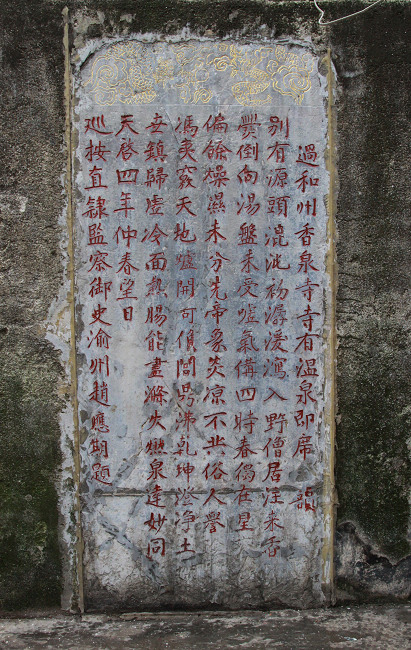 過和州香泉寺寺有溫泉即席韻
別有源頭混沌初潺湲瀉入野僧居注來香
倒向湯盤來噓氣備四時春在星
偏餘燥濕未分先帝象炎涼不共俗人譽
馮夷竅天地爐開可偵沸乾坤澄淨土
鎮歸虛冷面熱腸能盡滌火燃泉達妙同
天啓四年仲春望日
巡按直隸監察御史渝州趙應期題